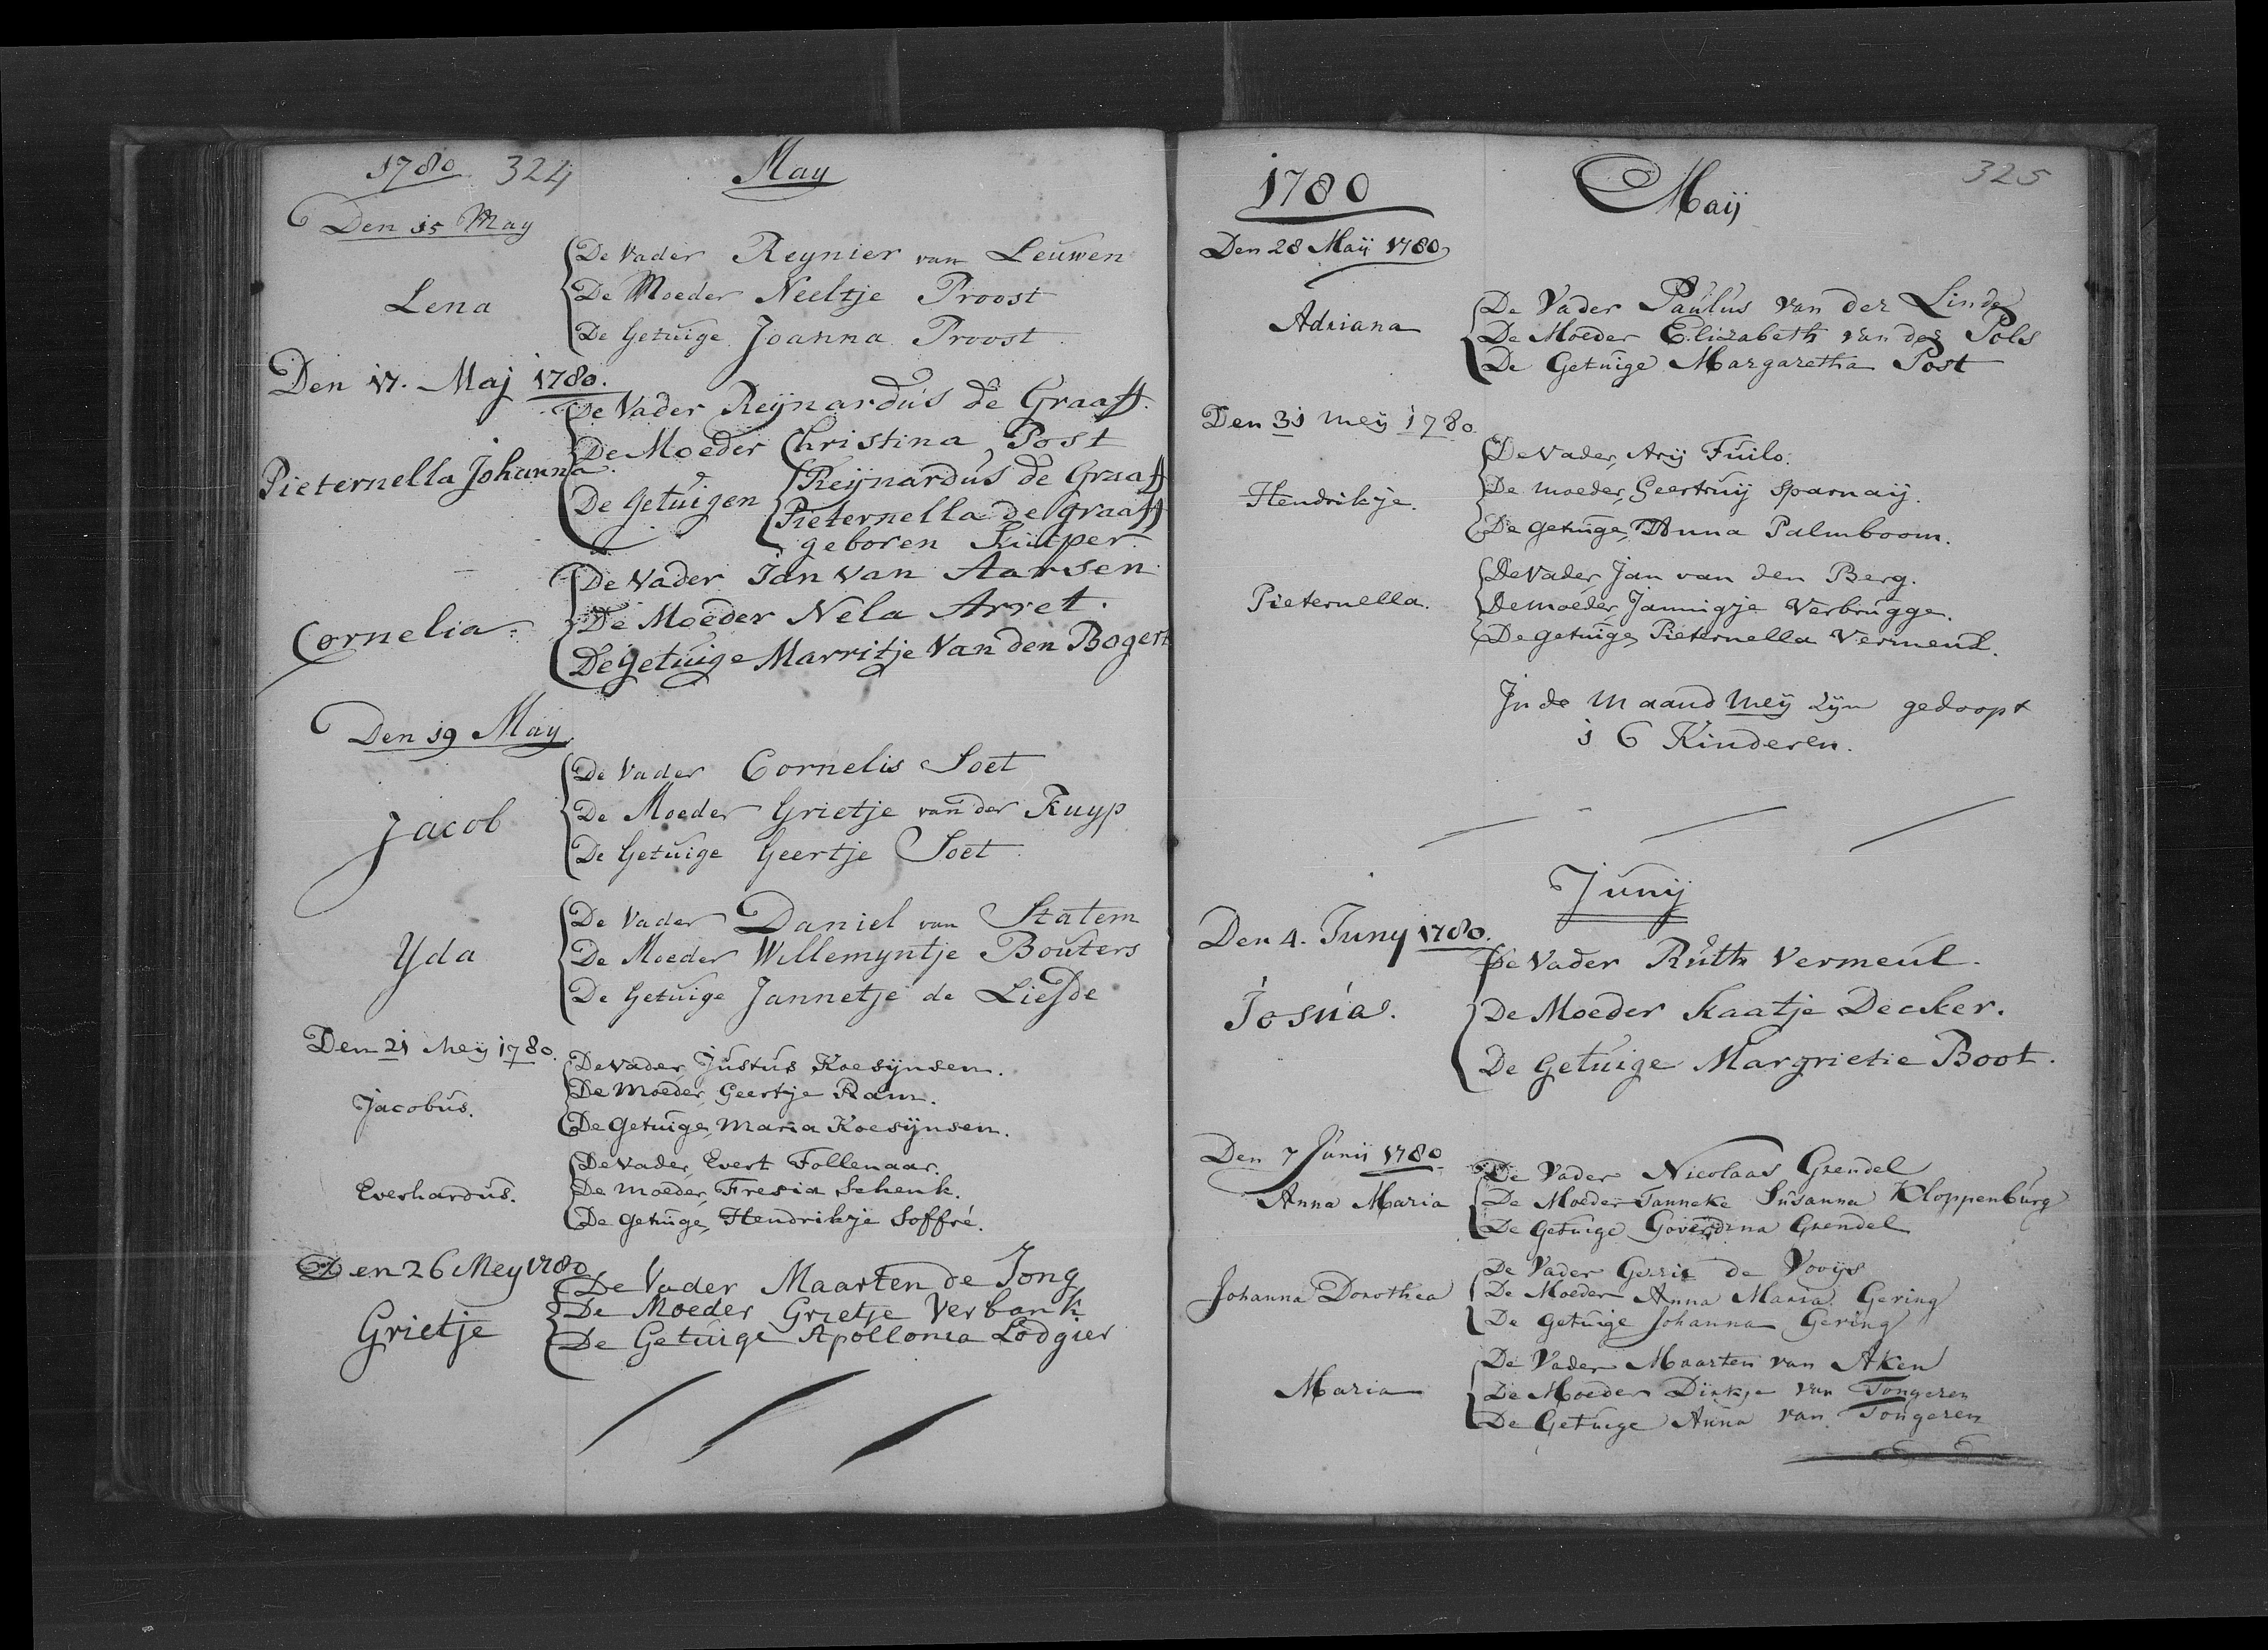 1780 324 May
Den 15 May
Lena
De Vader Reynier van Leuwen
De Moeder Neeltje Proost
De Getuige Joanna Proost
Den 17. Maj 1780.
Pieternella Johanna.
De Vader Reijnardus de Graaff.
De Moeder Christina Post
De Getuigen Reijnardus de Graaff
Pieternella de graaff
geboren Kuijper.
Cornelia.
De Vader Jan van Aarsen
De Moeder Nela Arret.
De Getuige Marritje Van den Bogert
Den 19 May
Jacob
De Vader Cornelis Soet
De Moeder Grietje van der Kuyp
De Getuige Geertje Soet
Yda
De Vader Daniel van Statem
De Moeder Willemyntje Bouters
De Getuige Jannetje de Liefde
Den 21 Meij 1780.
Jacobus.
De Vader, Justus Koesijnsen.
De Moeder, Geertje Ram.
De Getuige, Maria Koesijnsen.
Everhardus.
De Vader, Evert Follenaar.
De Moeder, Fresia Schenk.
De Getuige, Hendrikje Soffré.
Den 26 Mey 1780
Grietje
De Vader Maarten de Jong
De Moeder Grietje Verbank
De Getuige Apollonia Lodgier
1780 Maij 325
Den 28 Maij 1780
Adriana
De Vader Paulus van der Linde
De Moeder Elizabeth van der Pols
De Getuige Margaretha Post
Den 31 Meij 1780
Hendrikje.
De Vader, Arij Fuilo.
De Moeder, Geertruij Sparnaij.
De getuige, Anna Palmboom.
Pieternella.
De Vader, Jan van den Berg.
De moeder, Jannigje Verbrugge.
De getuige, Pieternella Vermeul.
In de Maand Meij zijn gedoopt
16 Kinderen.
Junij
Den 4. Juny 1780.
Josua.
De Vader Ruth Vermeul.
De Moeder Kaatje Decker.
De Getuige Margrietie Boot.
Den 7 Junij 1780
Anna Maria
De Vader Nicolaas Grendel
De Moeder Tanneke Susanna Kloppenburg
De Getuige Goverdina Grendel
Johanna Dorothea
De Vader Gerrit de Vooijs
De Moeder Anna Maria Gering
De Getuige Johanna Gering
Maria
De Vader Maarten van Aken
De Moeder Dirkje van Tongeren
De Getuige Anna van Tongeren